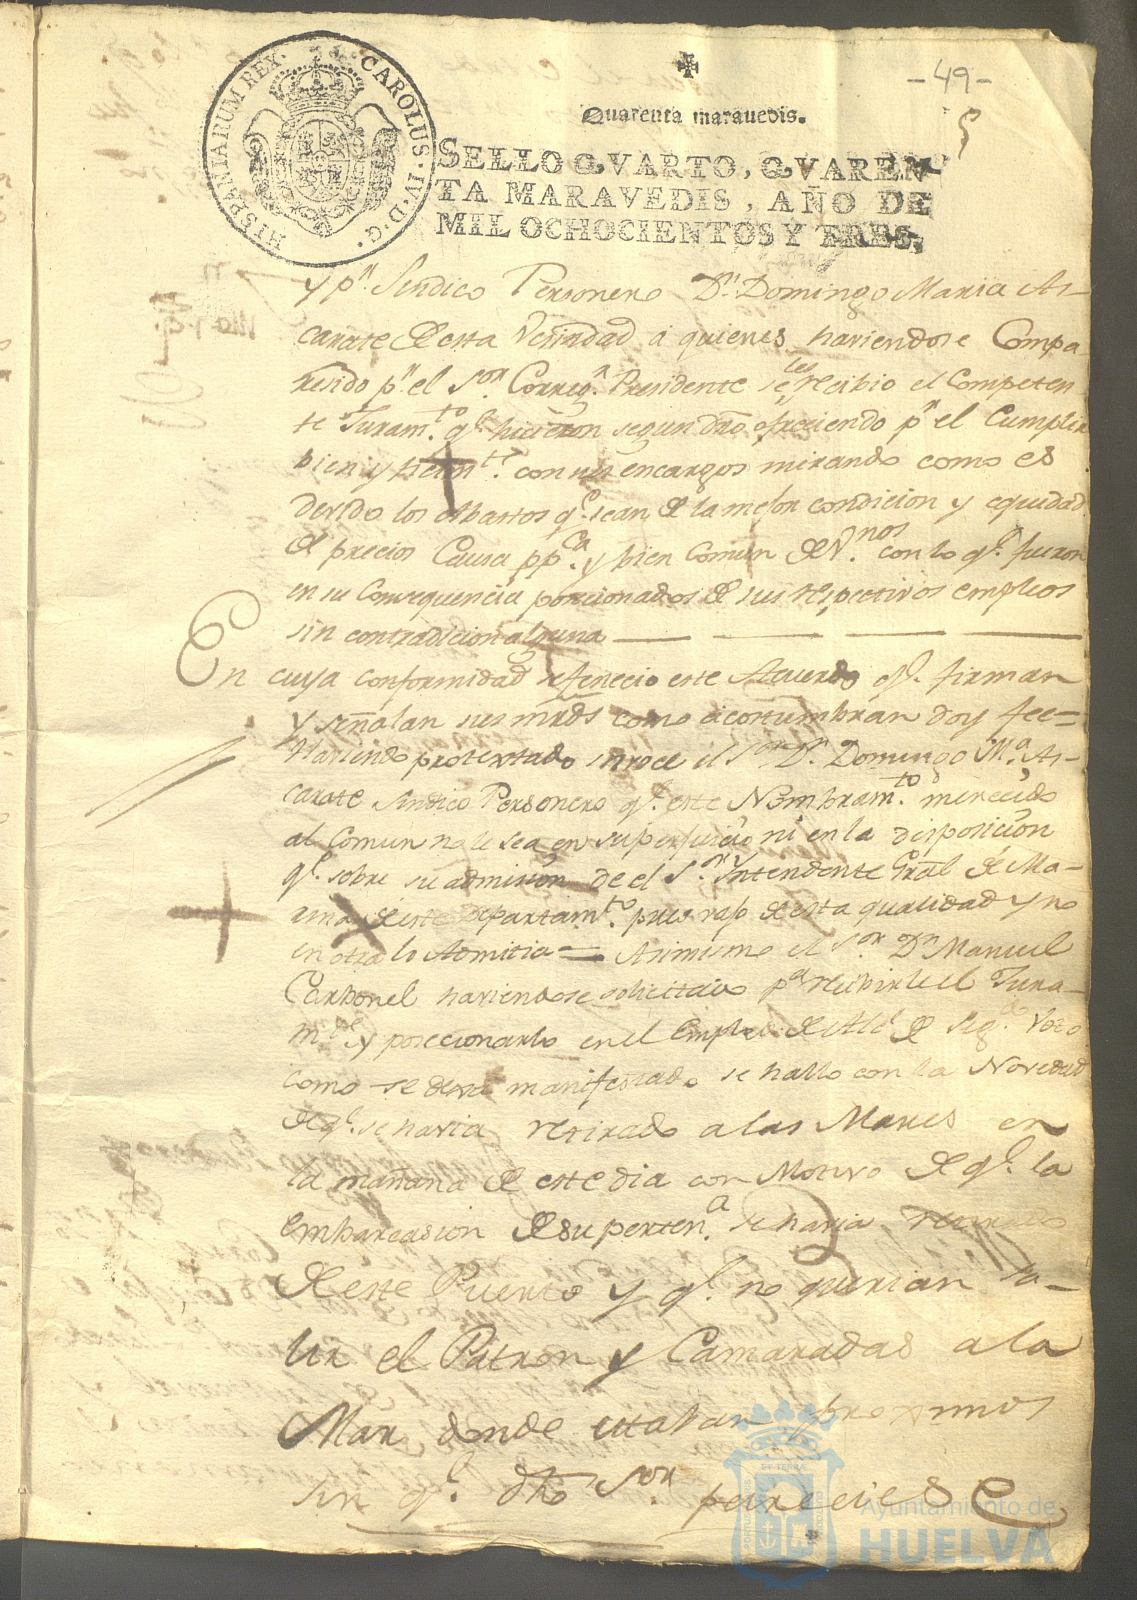 HISPANIARUM REX. CAROLUS. IV. D. G.
-49-
Quarenta marauedis.
SELLO QVARTO, QVAREN
TA MARAVEDIS, AÑO DE
MIL OCHOCIENTOS Y TRES.
y pr. Sindico Personero Dn. Domingo Maria As-
carate de esta Vecindad a quienes haviendose Compa
resido pr. el Sor. Correg.r Presidente se les recibio el Competen
te Juram.to q.e hicieron segun dro ofreciendo pr. el Cumplir
bien y fielm.te con sus encargos mirando como es
devido los Abastos q.e sean de la mejor condicion y equidad
de precios Causa pp.ca y bien Comun de V.nos con lo q.e fueron
en su Consequencia posecionados de sus respectivos empleos
sin contradicion alguna
En cuya conformidad se fenecio este Acuerdo q.e firman
y señalan sus mrds como acostumbran doy fee=
Haviendo protextado el Sor Dn. Domingo M.a As-
carate Sindico Personero q.e este Nombram.to merecido
al Comun no le sea en superjuicio ni en la disposicion
q.e sobre su admision de el Sor. Yntendente Gral de Ma-
rina de este departam.to pues vajo de esta qualidad y no
en otra lo Admitia = Asimismo el Sor Dn Manuel
Carbonel haviendose solicitado pa recibirle el Jura-
m.to y posecionarlo en el Empleo de Alc.e de Seg.do Voto
como se deva manifestado se hallo con la Novedad
de q.e se havia retirado a las Mares en
la mañana de este dia con Motivo de q.e la
embarcasion de su perten.a se havia retirado
de este Puerto y q.e no querian sa-
lir el Patron y Camaradas a la
Mar donde estaban proximos
sin q.e dho Sor. pareciese
Ayuntamiento de
HUELVA